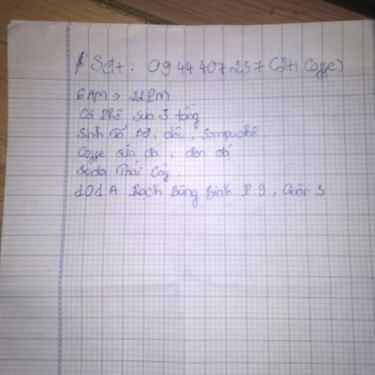 Sđt: 0944407237 (2H Coffe)
6AM → 22PM
Cà Phê sữa 3 tầng
Sinh tố bơ, dâu, Sampuchê
Coffe sữa đá, đen đá
Soda Trái Cây
101A Rạch Bùng Binh P 9, Quận 3